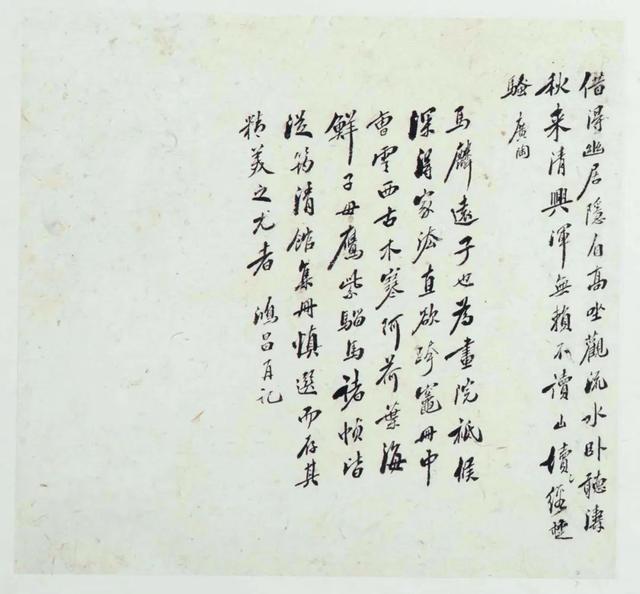 借得幽居隱自高坐觀流水卧聽濤
秋来清興渾無賴不讀山墳經楚
騷 廣陶
馬麟遠子也為畫院祗候
深得家法直欲跨竈册中
曹雲西古木寒柯荷葉海
鮮子母鷹紫騮馬諸幀皆
從筠清館集册慎選而存其
精美之尤者 記